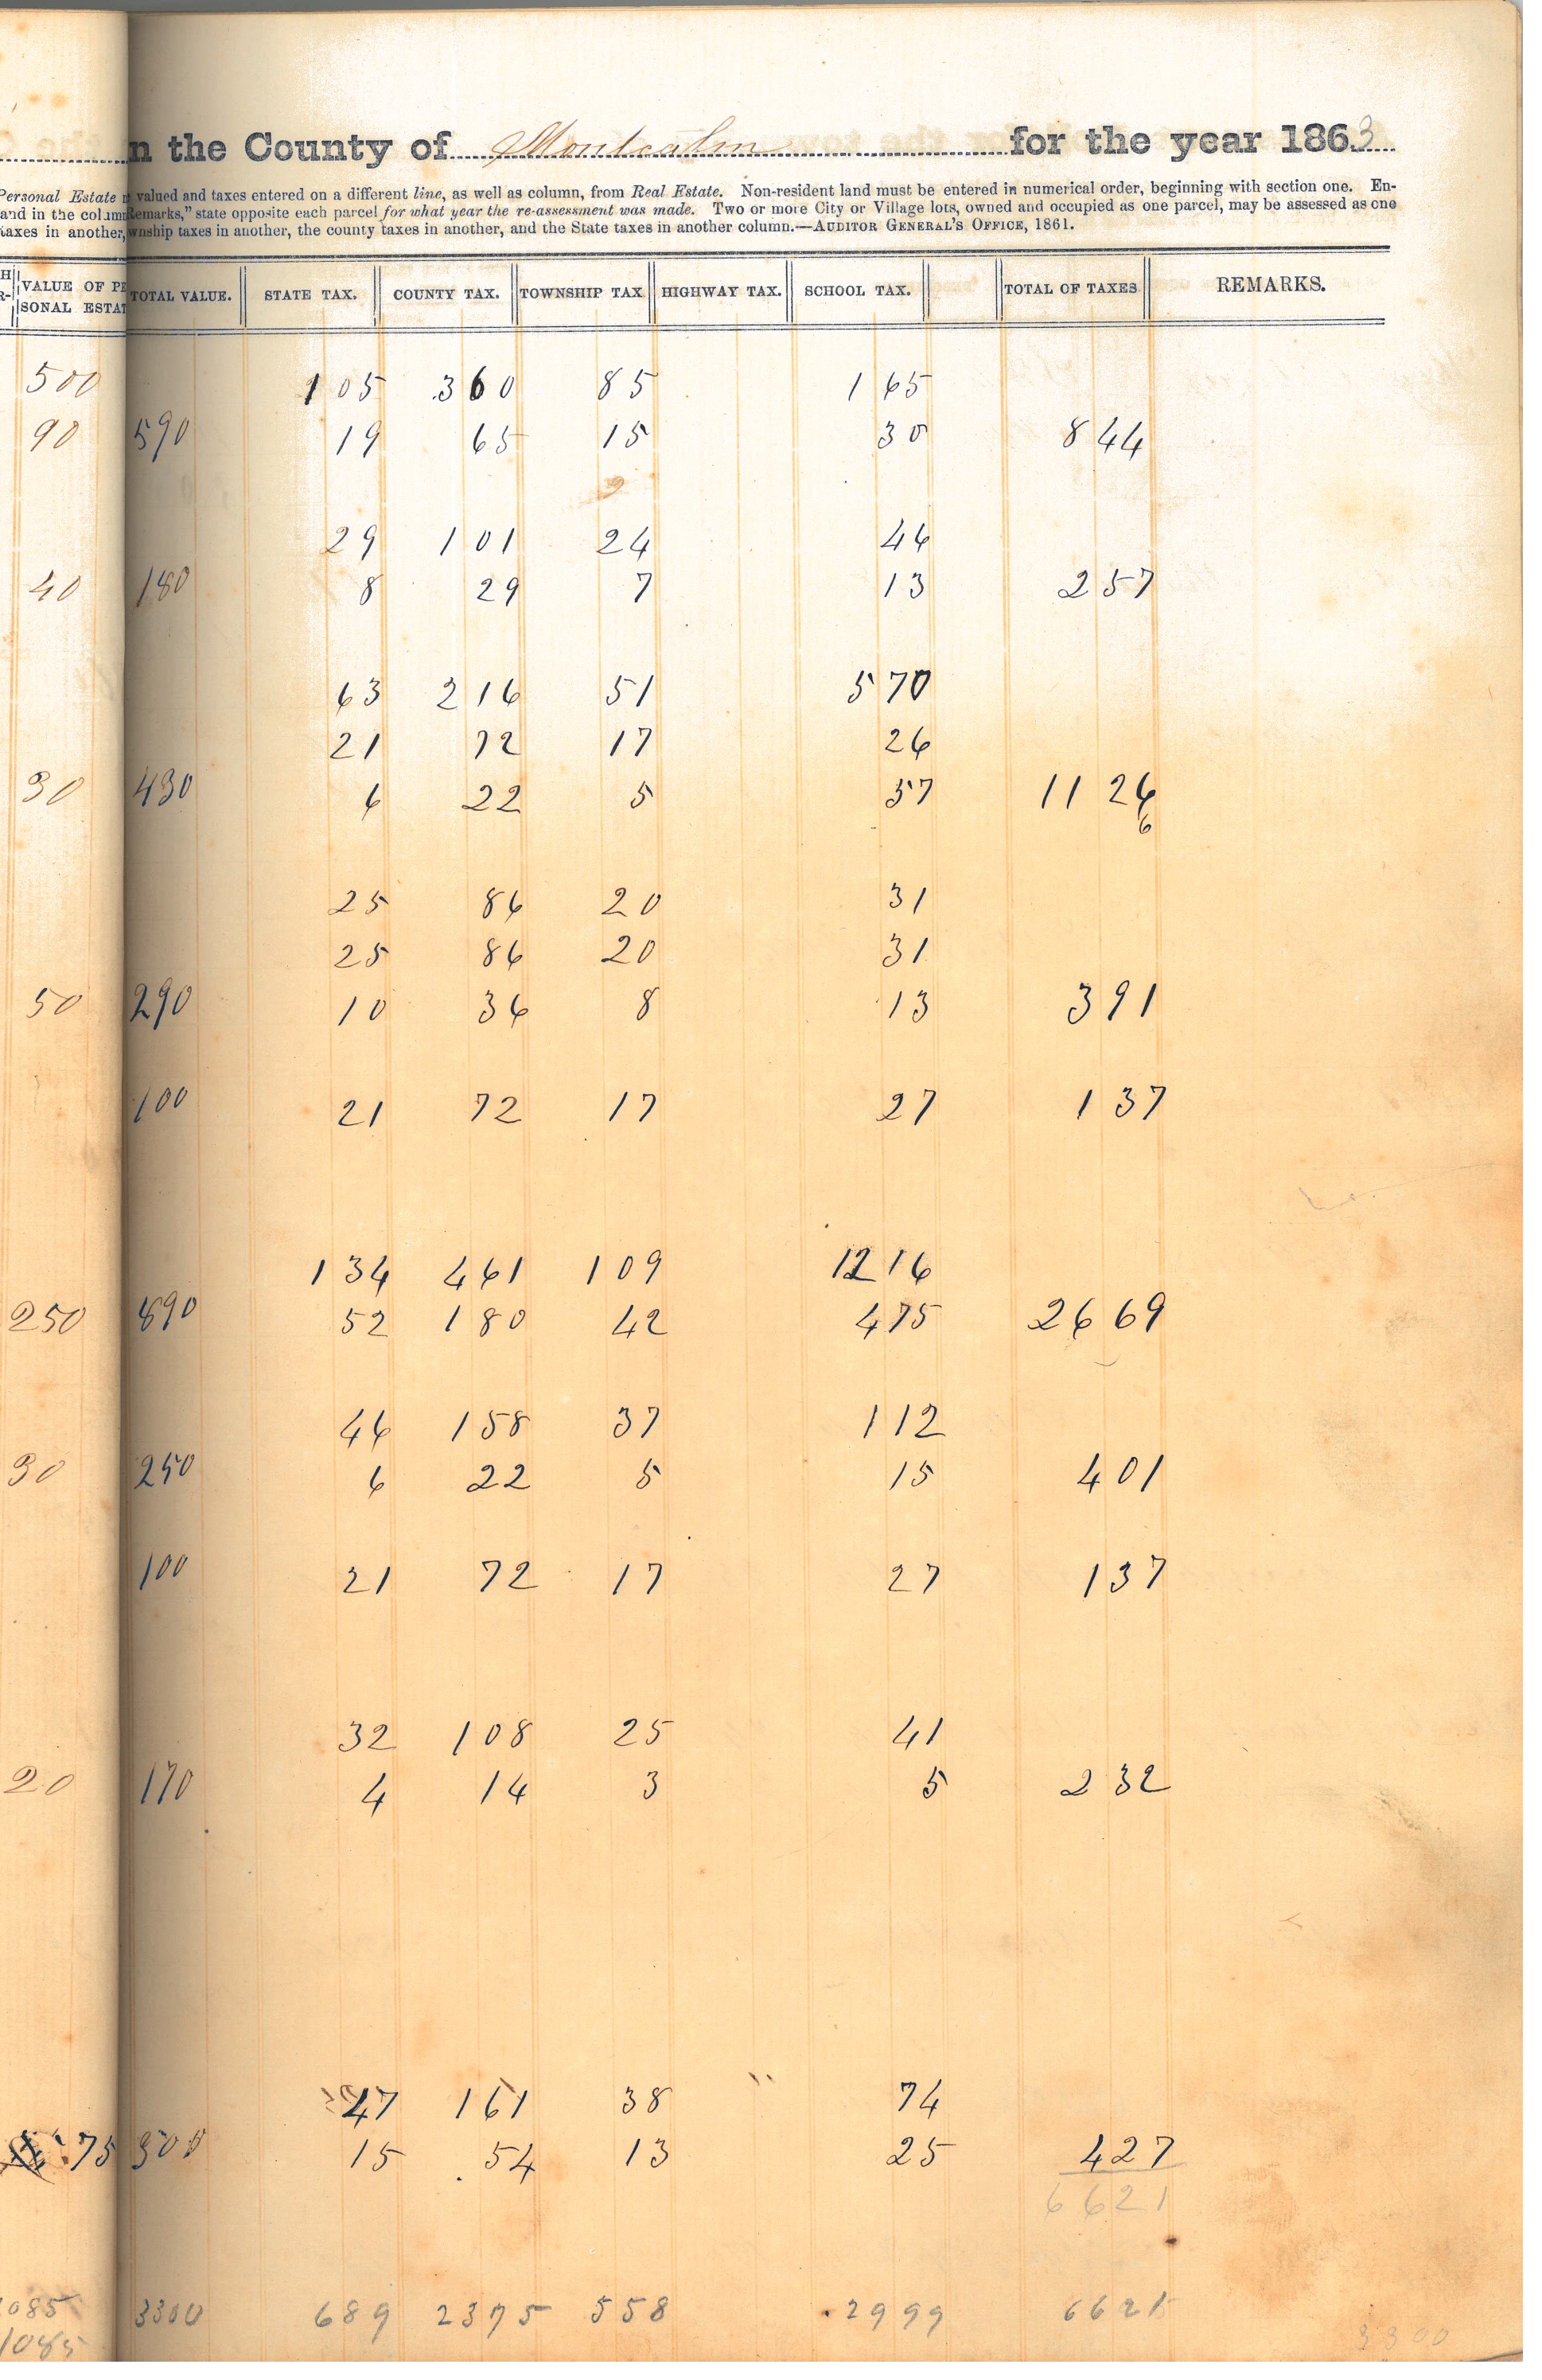 n the County of Montcalm for the year 1863
Personal Estate valued and taxes entered on a different line, as well as column, from Real Estate. Non-resident land must be entered in numerical order, beginning with section one. En-
and in the colum Remarks," state opposite each parcel for what year the re-assessment was made. Two or more City or Village lots, owned and occupied as one parcel, may be assessed as one
taxes in another, wnship taxes in another, the county taxes in another, and the State taxes in another column.—AUDITOR GENERAL'S OFFICE, 1861.
VALUE OF PE SONAL ESTA TOTAL VALUE. STATE TAX. COUNTY TAX. TOWNSHIP TAX HIGHWAY TAX. SCHOOL TAX. TOTAL OF TAXES REMARKS.
500 1 05 3 60 85 1 65
90 590 19 65 15 30 8 44
29 1 01 24 46
40 180 8 29 7 13 2 57
63 2 16 51 5 70
21 72 17 26
30 430 6 22 5 57 11 26
6
25 86 20 31
25 86 20 31
50 290 10 36 8 13 3 91
100 21 72 17 27 1 37
1 34 4 61 1 09 12 16
250 890 52 1 80 42 4 75 26 69
46 1 58 37 1 12
30 250 6 22 5 15 4 01
100 21 72 17 27 1 37
32 1 08 25 41
20 170 4 14 3 5 2 32
47 1 61 38 74
75 300 15 54 13 25 4 27
66 21
1085 3300 6 89 23 75 5 58 29 99 66 21
1085 3300